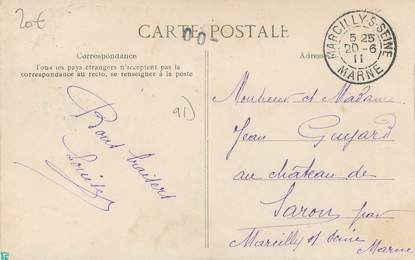 20€
CARTE POSTALE
Correspondance
Tous les pays étrangers n'acceptent pas la
correspondance au recto, se renseigner à la poste
Adres
MARCILLY-S-SEINE
5 25
20-6
11
MARNE
91
Bons baisers
Louise
Monsieur et Madame
Jean Guyard
au château de
Saron par
Marcilly s/ Seine
Marne